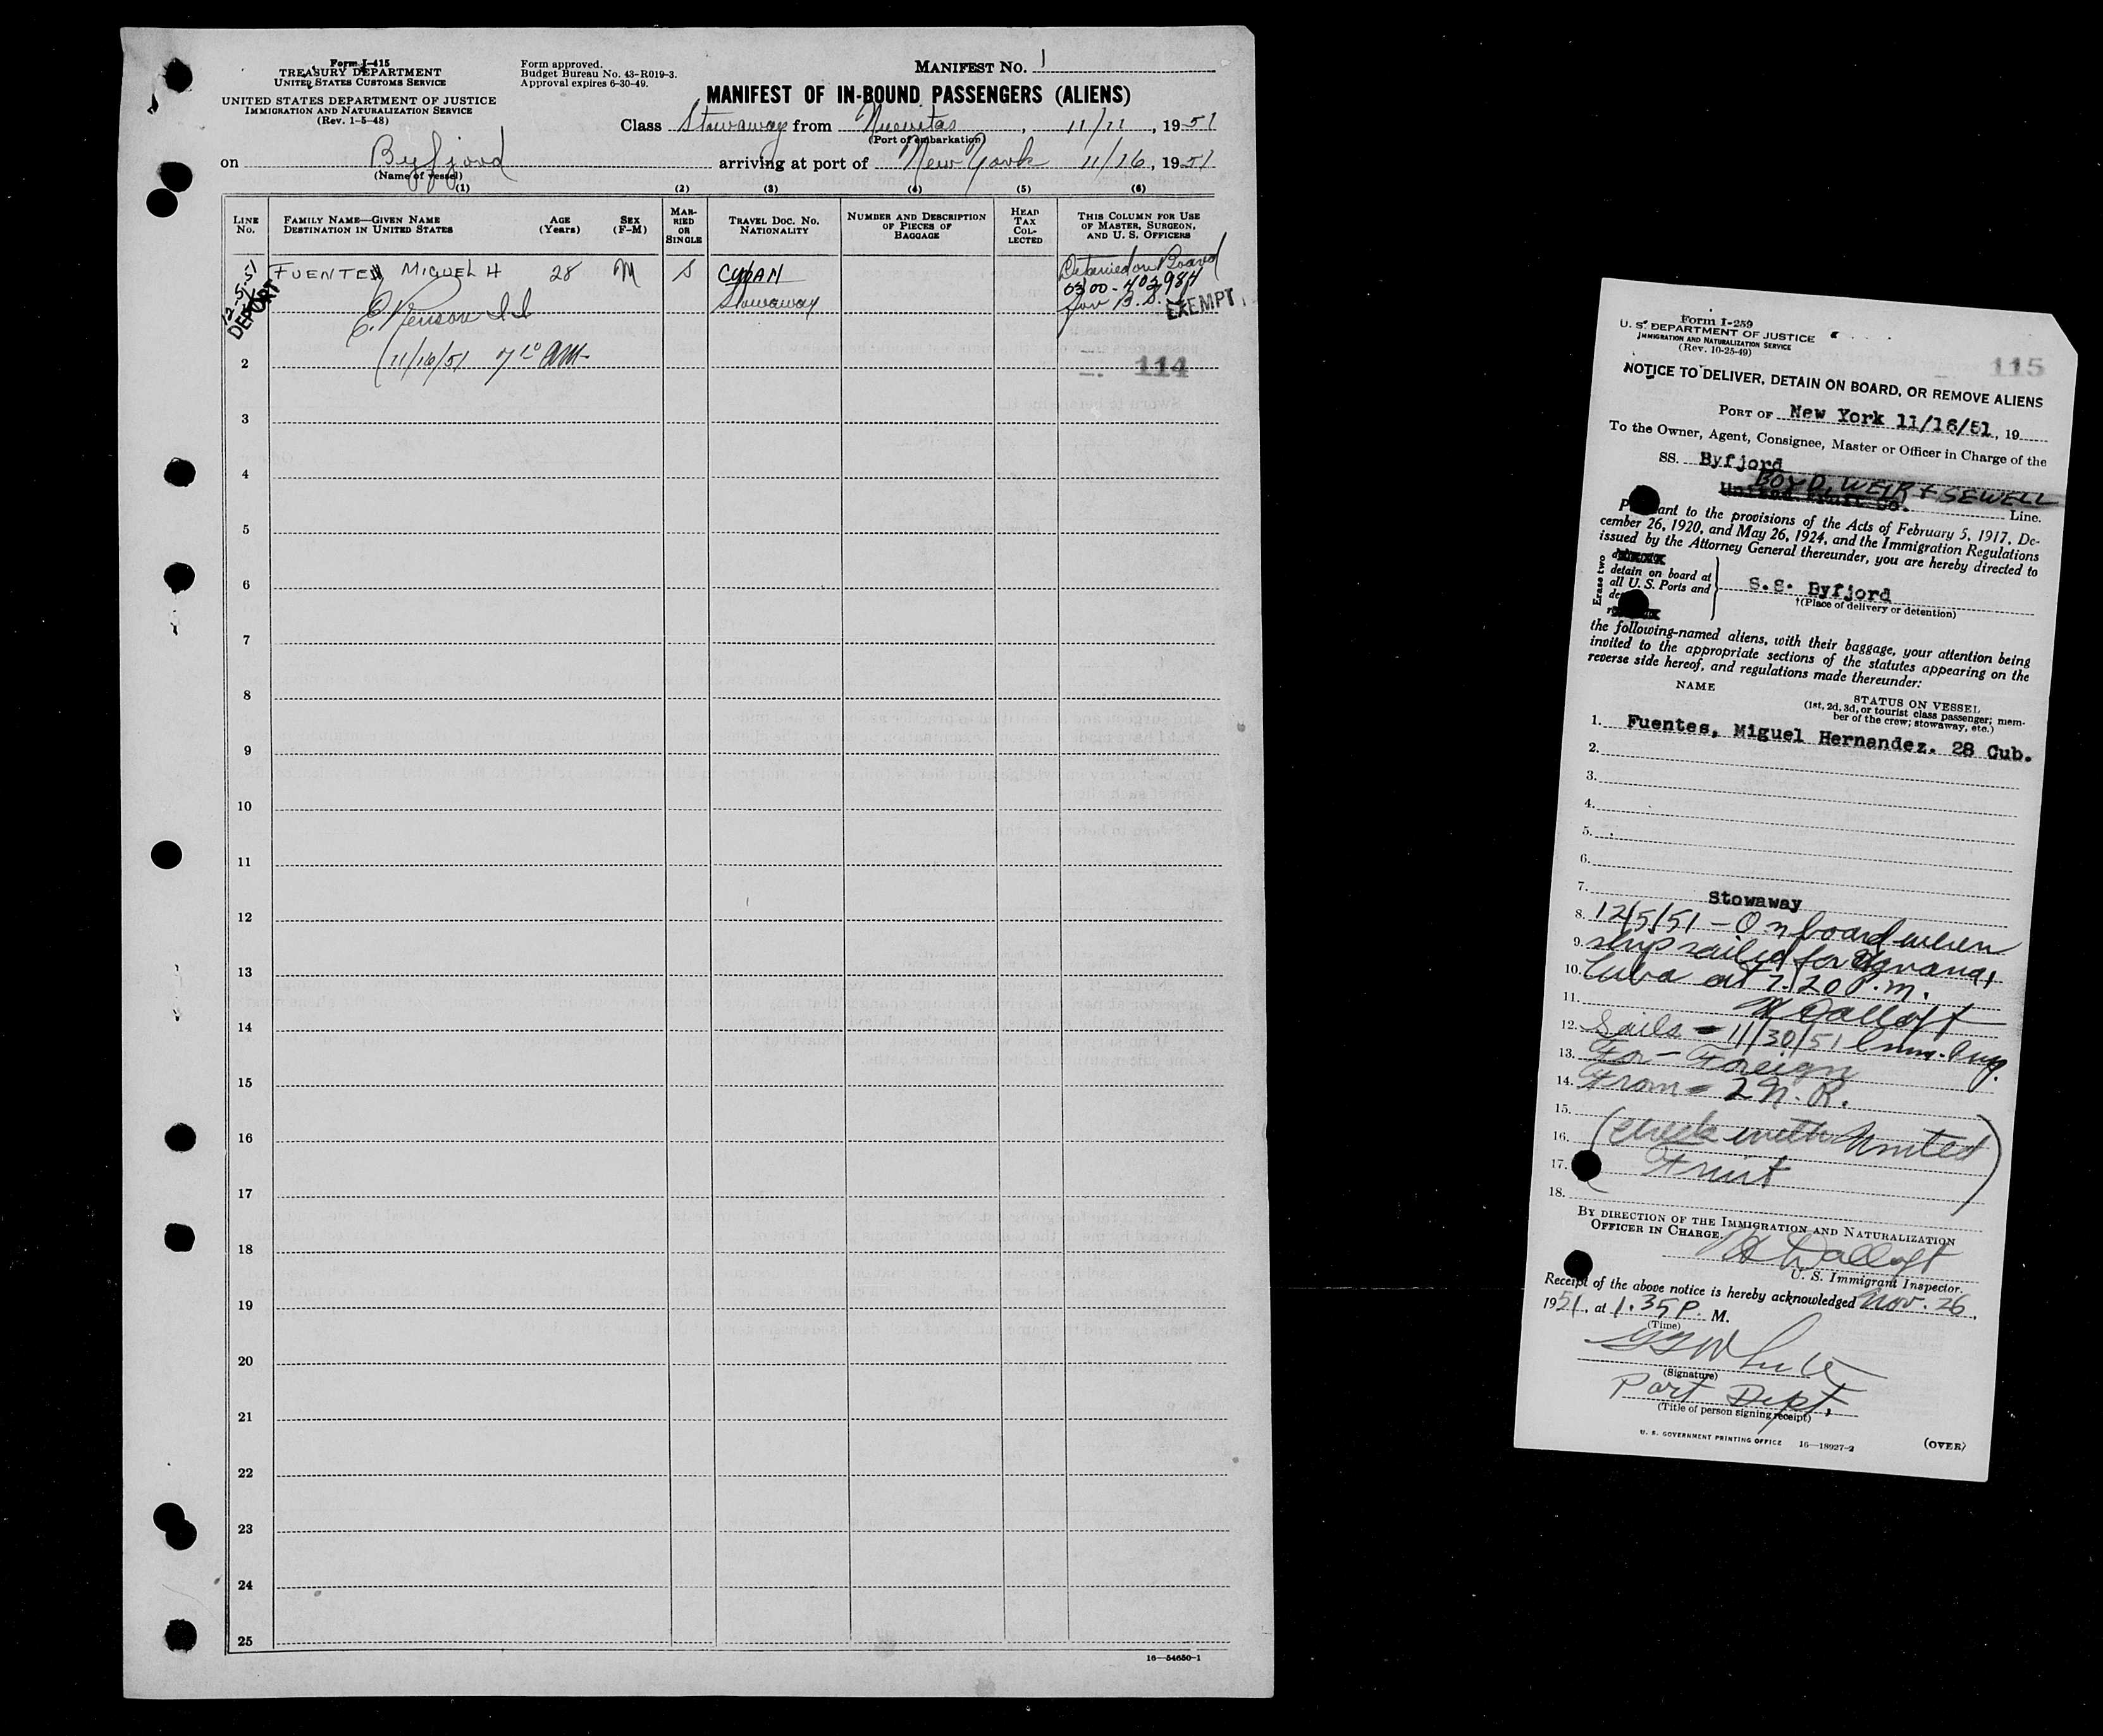 Form I-415
TREASURY DEPARTMENT
UNITED STATES CUSTOMS SERVICE
UNITED STATES DEPARTMENT OF JUSTICE
IMMIGRATION AND NATURALIZATION SERVICE
(Rev. 1-5-48)
Form approved.
Budget Bureau No. 43-R019-3.
Approval expires 6-30-49.
MANIFEST NO. 1
MANIFEST OF IN-BOUND PASSENGERS (ALIENS)
Class Stowaway from Nuevitas, 11/11, 1951
(Port of embarkation)
on Byfjord arriving at port of New York 11/16, 1951
(Name of vessel)
(1) (2) (3) (4) (5) (6)
LINE No. FAMILY NAME—GIVEN NAME DESTINATION IN UNITED STATES AGE (Years) SEX (F-M) MARRIED OR SINGLE TRAVEL DOC. NO. NATIONALITY NUMBER AND DESCRIPTION OF PIECES OF BAGGAGE HEAD TAX COLLECTED THIS COLUMN FOR USE OF MASTER, SURGEON, AND U. S. OFFICERS
12-5-51 DEPORT
FUENTES MIGUEL H 28 M S CUBAN Detained on Board
Stowaway 0300-402984
for B.S.I. EXEMPT
11/16/51 7 10 AM
2 114
3
4
5
6
7
8
9
10
11
12
13
14
15
16
17
18
19
20
21
22
23
24
25
16—54650-1
Form I-259
U. S. DEPARTMENT OF JUSTICE
IMMIGRATION AND NATURALIZATION SERVICE
(Rev. 10-25-49)
115
NOTICE TO DELIVER, DETAIN ON BOARD, OR REMOVE ALIENS
PORT OF New York 11/16/51, 19
To the Owner, Agent, Consignee, Master or Officer in Charge of the
SS. Byfjord
BOYD, WEIR & SEWELL
United Fruit Co. Line.
Pursuant to the provisions of the Acts of February 5, 1917, De-
cember 26, 1920, and May 26, 1924, and the Immigration Regulations
issued by the Attorney General thereunder, you are hereby directed to
Erase two
detain on board at
all U. S. Ports and
S.S. Byfjord
†(Place of delivery or detention)
the following-named aliens, with their baggage, your attention being
invited to the appropriate sections of the statutes appearing on the
reverse side hereof, and regulations made thereunder:
NAME STATUS ON VESSEL
(1st, 2d, 3d, or tourist class passenger; mem-
ber of the crew; stowaway, etc.)
1. Fuentes, Miguel Hernandez. 28 Cub.
2.
3.
4.
5.
6.
7. Stowaway
8. 12/5/51 - On board when
9. ship sailed for Havana,
10. Cuba at 7.20 P.m.
11.
12. Sails - 11/30/51
13. For - Foreign
14. From - 2 N. R.
15.
16. (Check with United
17. Fruit)
18.
BY DIRECTION OF THE IMMIGRATION AND NATURALIZATION
OFFICER IN CHARGE.
U. S. Immigrant Inspector.
Receipt of the above notice is hereby acknowledged Nov. 26,
1951, at 1.35 P. M.
(Time)
(Signature)
Port Dept.
(Title of person signing receipt)
U. S. GOVERNMENT PRINTING OFFICE 16—18927-2 (OVER)